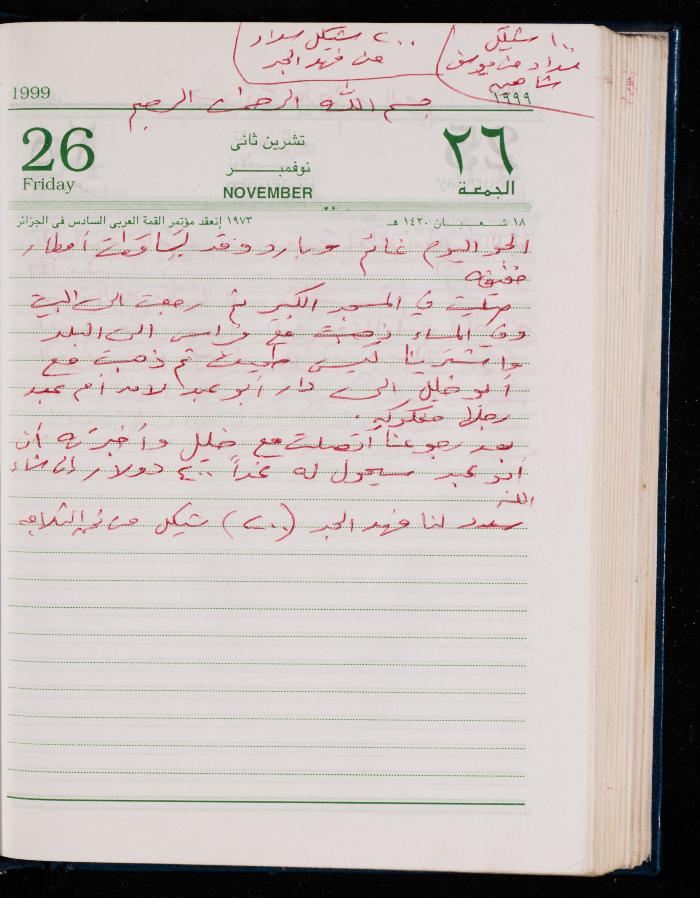 ١٠٠ شيكل
سداد من يوسف
شاهين
٢٠٠ شيكل سداد
من فهد الجبر
1999
١٩٩٩
بسم الله الرحمن الرحيم
26
Friday
تشرين ثانى
نوفمبر
NOVEMBER
٢٦
الجمعة
١٨ شعبان ١٤٢٠ هـ
١٩٧٣ إنعقد مؤتمر القمة العربى السادس فى الجزائر
الجو اليوم غائم وبارد وقد تساقطت أمطار
خفيفه
صليت في المسجد الكبير ثم رجعت الى البيت
وفي المساء ذهبت مع فراس الى البلد
واشترينا كيس طحين ثم ذهبت مع
أبو خليل الى دار أبو عبد لأن أم عبد
رجلها مفكوكه.
بعد رجوعنا اتصلت مع خليل وأخبرته أن
أبو عبد سيحول له غداً ٤٠٠ دولار إن شاء
الله
سدد لنا فهد الجبر (٢٠٠) شيكل من ثمن الثلاجه